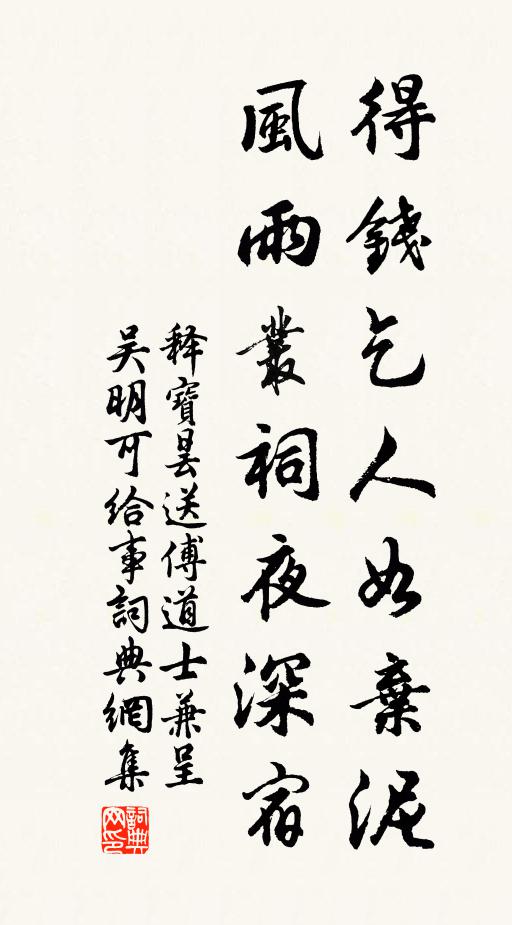 得錢乞人如棄泥
風雨叢祠夜深宿
释寶昙送傅道士兼呈
吴明可给事詞典網集
詞典网印